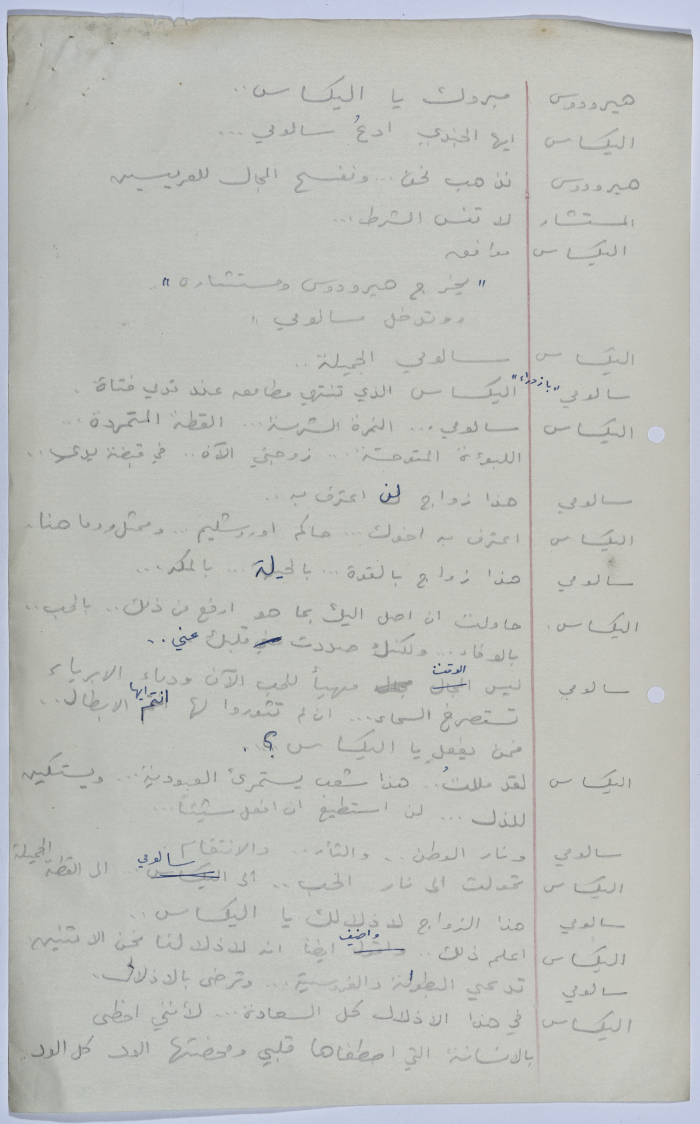 هيرودوس مبروك يا اليكاس ..
اليكاس ايها الجندي ادعُ سالومي ...
هيرودوس نذهب نحن ... ونفسح المجال للعريسين
المستشار لا تنس الشرط ...
اليكاس موافق
" يخرج هيرودوس ومستشاره "
وتدخل سالومي
اليكاس سالومي الجميلة ..
سالومي "بازدراء" اليكاس الذي تنتهي مطامعه عند قدمي فتاة .
اليكاس سالومي ... النمرة الشرسة ... القطة المتمردة ...
اللبوءة المتوحشة ... زوجتي الآن .. في قبضة يدي ..
سالومي هذا زواج لن اعترف به ..
اليكاس اعترف به اخوك ... حاكم اورشليم .. وممثل روما هنا .
سالومي هذا زواج بالقوة ... بالحيلة ... بالمكر ...
اليكاس . حاولت ان اصل اليك بما هو ارفع من ذلك .. بالحب ..
بالوفاء ... ولكنك صددت قلبك عني ..
سالومي ليس الوقت مهيأ للحب الآن ودماء الابرياء
تستصرخ السماء ... ان لم تثوروا لها انتم ايها الابطال ...
فمن يفعل يا اليكاس ؟ .
اليكاس لقد مللتُ .. هذا شعب يستمرئ العبودية ... ويستكين
للذل ... لن استطيع ان افعل شيئاً ...
سالومي ونار الوطن .. والثأر .. والانتقام
اليكاس تحولت الى نار الحب .. الى سالومي .. الى القطة الجميلة
سالومي هذا الزواج لاذلالك يا اليكاس ..
اليكاس اعلم ذلك .. واضيف ايضا انه لاذلالنا نحن الاثنين
سالومي تدعي البطولة والفروسية ... وترضى بالاذلال .
اليكاس في هذا الاذلال كل السعادة ... لأنني احظى
بالانسانة التي اصطفاها قلبي ومحضتها الود كل الود .